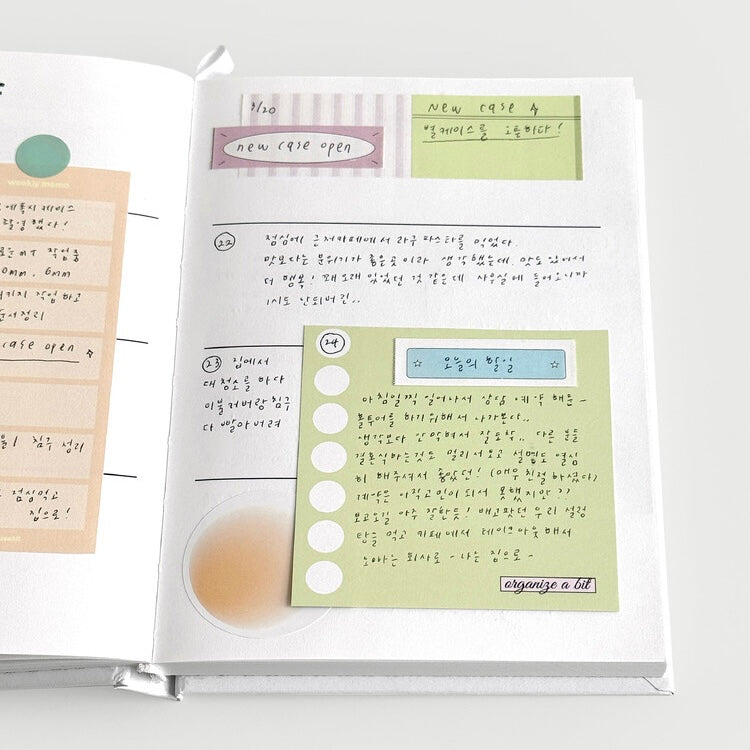 weekly memo
에폭시 케이스
촬영했다!
작업중
0mm, 6mm
패키지 작업하고
문서정리
case open
침구 정리
점심먹고
집으로!
8/20
new case open
New case
별케이스를 오픈하다!
22
점심에 근처카페에서 라구파스타를 먹었다.
맛보다는 분위기가 좋은곳이라 생각했는데, 맛도 있어서
더 행복! 꽤 오래 있었던 것 같은데 사무실에 들어오니까
1시도 안되버린..
23 집에서
대청소를 하다
이불커버랑 침구
다 빨아버려
24
오늘의 할일
아침일찍 일어나서 상담 예약 해둔~
홀투어를 하기위해서 나가본다..
생각보다 안막혀서 잘도착.. 다른 분들
결혼식하는것도 멀리서보고 설명도 열심
히 해주셔서 좋았던! (매우친절하셨다)
계약은 아직고민이되서 못했지만??
보고오길 아주 잘한듯! 배고팠던 우리 설렁
탕을 먹고 카페에서 테이크아웃해서
오빠는 회사로~ 나는 집으로~
organize a bit